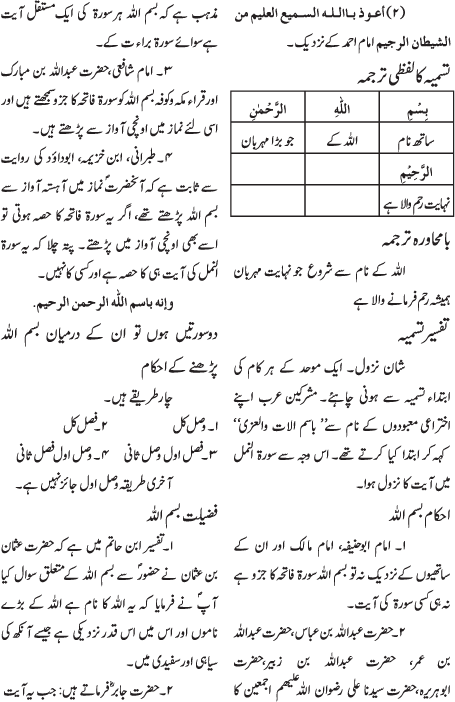 (۲) أعوذ باالله السميع العليم من
الشيطان الرجيم امام احمد کے نزدیک۔
تسمیہ کا لفظی ترجمہ
بِسْمِ اللّٰهِ الرَّحْمٰنِ
ساتھ نام اللہ کے جو بڑا مہربان
الرَّحِيْمِ
نہایت رحم والا ہے
بامحاورہ ترجمہ
اللہ کے نام سے شروع جو نہایت مہربان
ہمیشہ رحم فرمانے والا ہے
تفسیر تسمیہ
شان نزول۔ ایک موحد کے ہر کام کی
ابتداء تسمیہ سے ہونی چاہئے۔ مشرکین عرب اپنے
اختراعی معبودوں کے نام سے ’’باسم الات والعزیٰ‘‘
کہہ کر ابتدا کیا کرتے تھے۔ اس وجہ سے سورۃ النمل
میں آیت کا نزول ہوا۔
احکام بسم اللہ
۱۔ امام ابوحنیفہ، امام مالک اور ان کے
ساتھیوں کے نزدیک نہ تو بسم اللہ سورۃ فاتحہ کا جزو ہے
نہ ہی کسی سورۃ کی آیت۔
۲۔حضرت عبداللہ بن عباس، حضرت عبداللہ
بن عمر، حضرت عبداللہ بن زبیر، حضرت
ابوہریرہ، حضرت سیدنا علی رضوان اللہ علیھم اجمعین کا
مذہب ہے کہ بسم اللہ ہر سورۃ کی ایک مستقل آیت
ہے سوائے سورۃ براءت کے۔
۳۔ امام شافعی، حضرت عبداللہ بن مبارک
اور قراء مکہ و کوفہ بسم اللہ کو سورۃ فاتحہ کا جزو سمجھتے ہیں اور
اسی لئے نماز میں اونچی آواز سے پڑھتے ہیں۔
۴۔ طبرانی، ابن خزیمہ، ابوداؤد کی روایت
سے ثابت ہے کہ آنحضرتؐ نماز میں آہستہ آواز سے
بسم اللہ پڑھتے تھے، اگر یہ سورۃ فاتحہ کا حصہ ہوتی تو
اسے بھی اونچی آواز میں پڑھتے۔ پتہ چلا کہ یہ سورۃ
النمل کی آیت ہی کا حصہ ہے اور کسی کا نہیں۔
وإنه باسم الله الرحمن الرحيم.
دو سورتیں ہوں تو ان کے درمیان بسم اللہ
پڑھنے کے احکام
چار طریقے ہیں۔
۱۔ وصل کل ۲۔ فصل کل
۳۔ فصل اول وصل ثانی ۴۔ وصل اول فصل ثانی
آخری طریقہ وصل اول جائز نہیں ہے۔
فضیلت بسم اللہ
۱۔ تفسیر ابن حاتم میں ہے کہ حضرت عثمان
بن عثمان نے حضورؐ سے بسم اللہ کے متعلق سوال کیا
آپؐ نے فرمایا کہ یہ اللہ کا نام ہے اللہ کے بڑے
ناموں اور اس میں اس قدر نزدیکی ہے جیسے آنکھ کی
سیاہی اور سفیدی میں۔
۲۔ حضرت جابرؓ فرماتے ہیں: جب یہ آیت